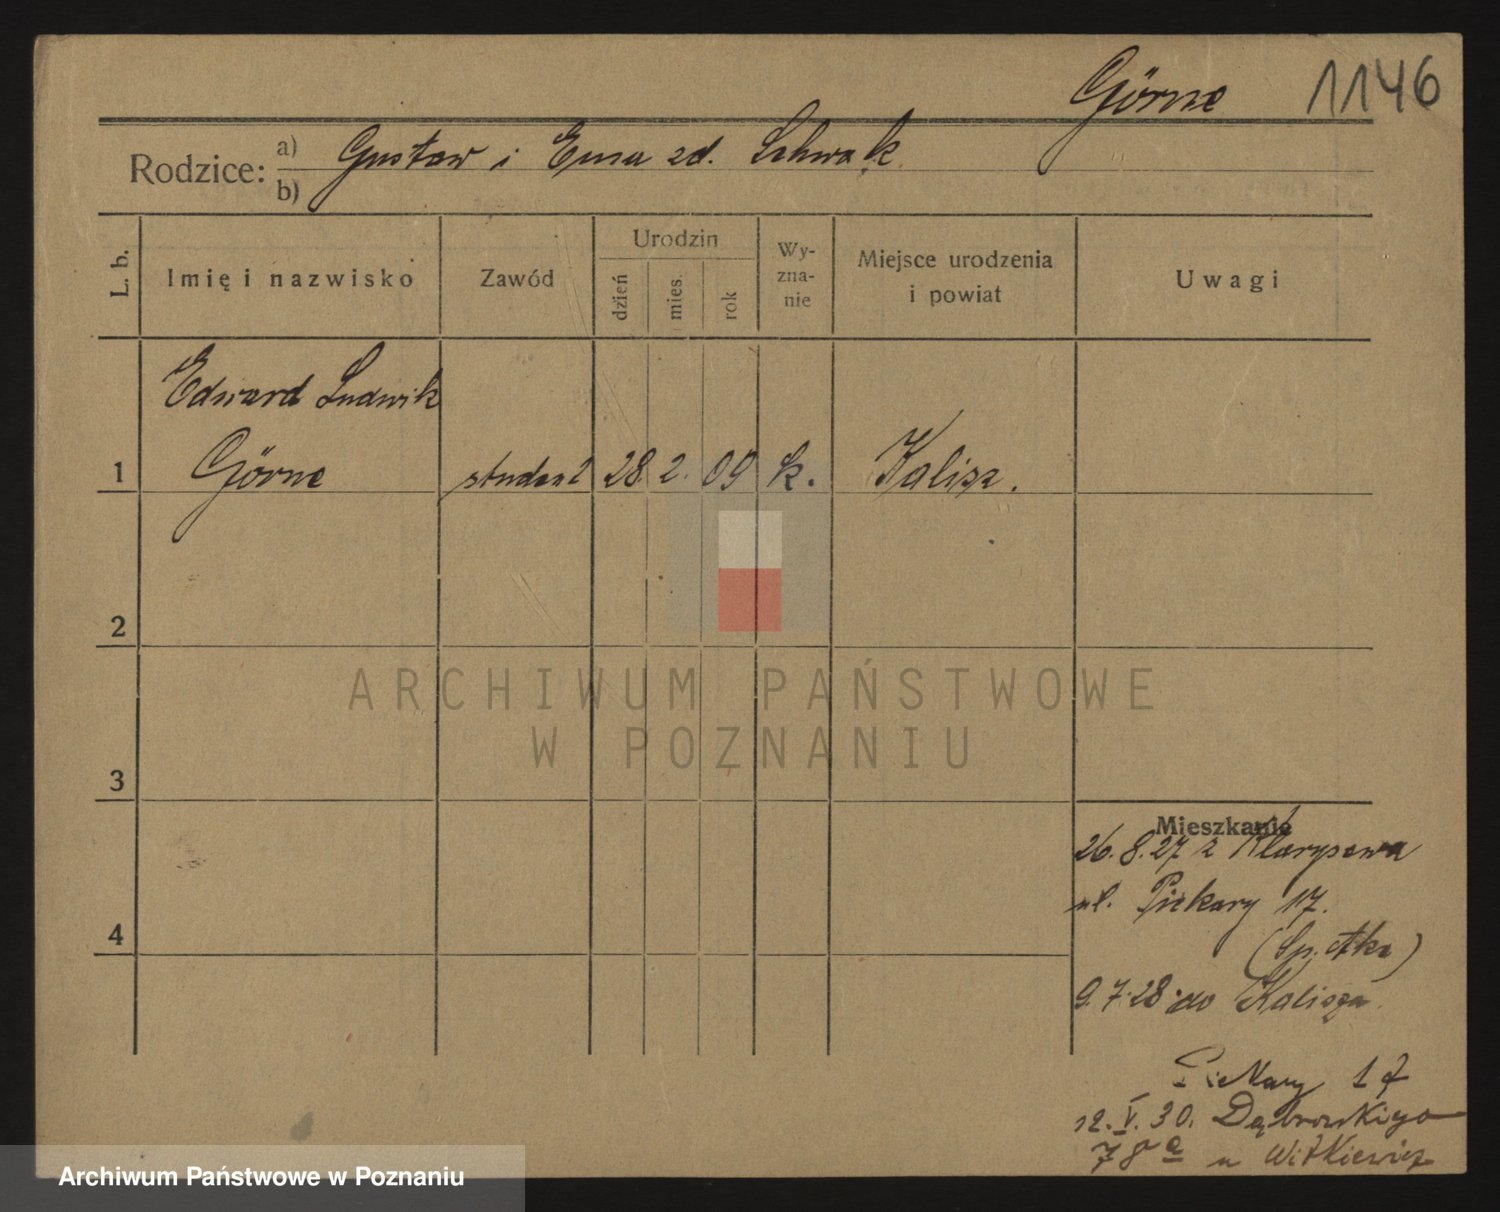 Görne 1146
Rodzice: a) Gustaw i Ema zd. Schwak
b)
L. b.
Imię i nazwisko
Zawód
Urodzin
dzień
mies.
rok
Wy-
zna-
nie
Miejsce urodzenia
i powiat
Uwagi
Edward Ludwik
1 Görne student 28. 2. 09 k. Kalisz.
2
ARCHIWUM PAŃSTWOWE
W POZNANIU
3
Mieszkanie
26.8.27 z Klarysewa
ul. Piekary 17.
4
9.7.28 do Kalisza
Piekary 17
12.V.30. Dąbrowskiego
78a u Witkiewicz
Archiwum Państwowe w Poznaniu